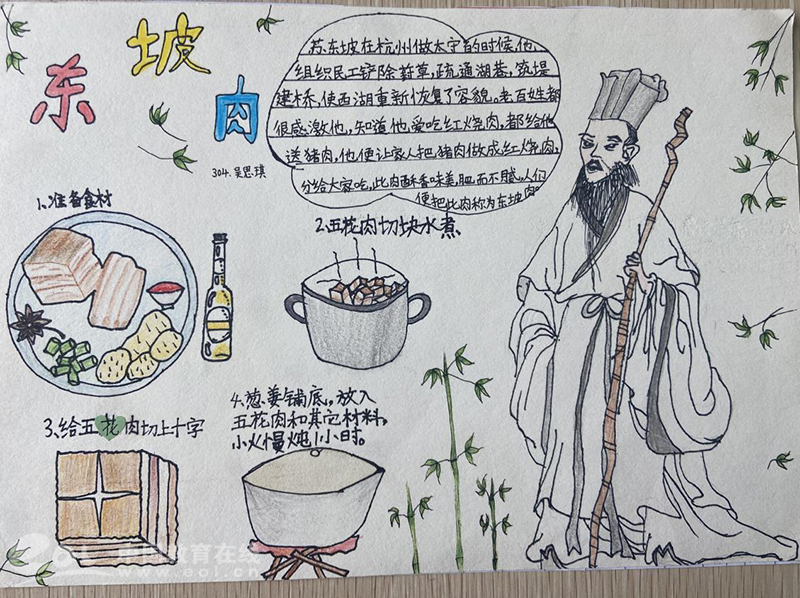 东坡肉
304.吴思琪
苏东坡在杭州做太守的时候,他
组织民工铲除葑草,疏通湖巷,筑堤
建桥,使西湖重新恢复了容貌。老百姓都
很感激他,知道他爱吃红烧肉,都给他
送猪肉,他便让家人把猪肉做成红烧肉,
分给大家吃,此肉酥香味美,肥而不腻。人们
便把此肉称为东坡肉。
1.准备食材
2.五花肉切块水煮
3.给五花肉切上十字
4.葱姜铺底,放入
五花肉和其它材料,
小火慢炖1小时。
中国教育在线
www.eol.cn